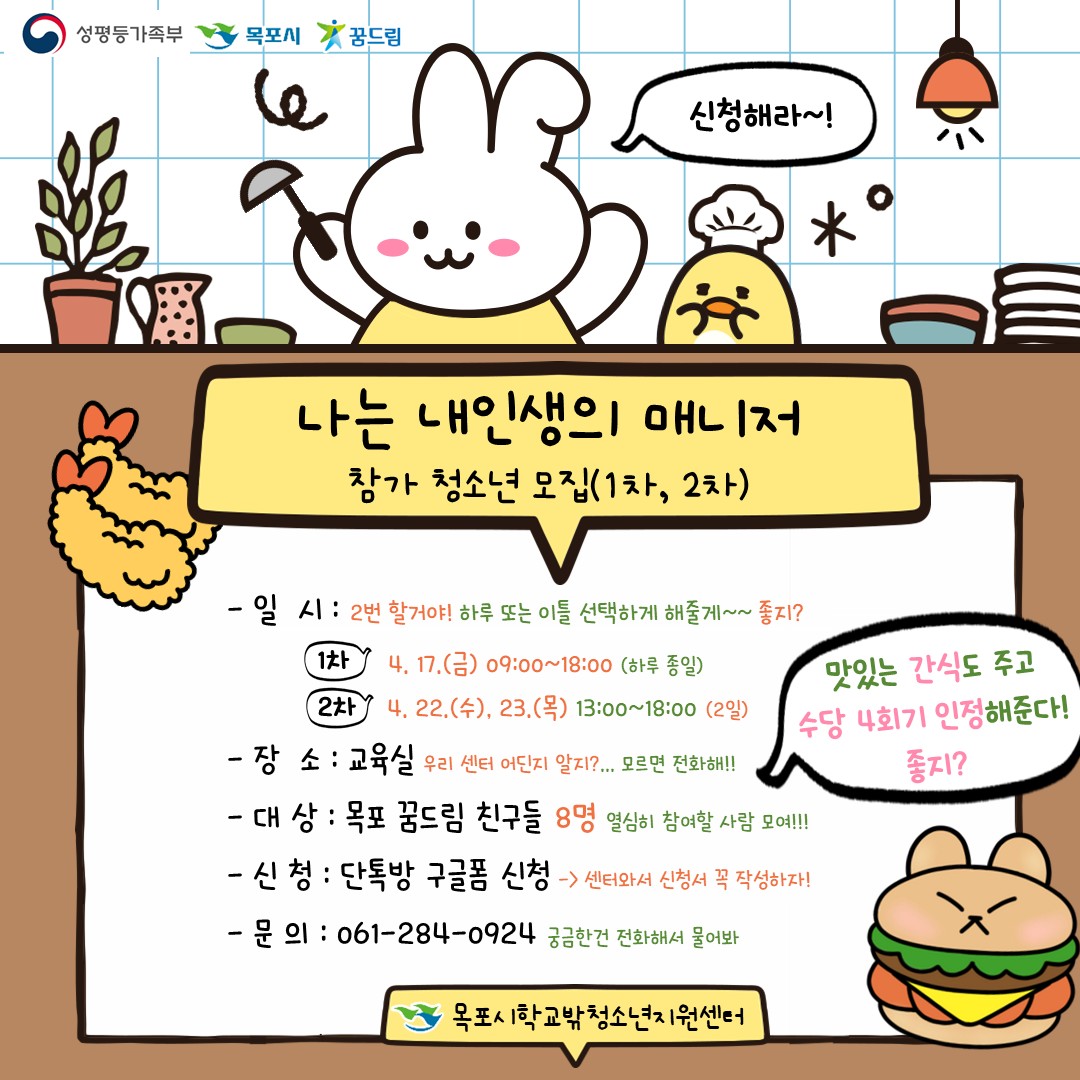 성평등가족부 목포시 꿈드림
신청해라~!
나는 내인생의 매니저
참가 청소년 모집(1차, 2차)
- 일 시 : 2번 할거야! 하루 또는 이틀 선택하게 해줄게~~ 좋지?
1차 4. 17.(금) 09:00~18:00 (하루 종일)
2차 4. 22.(수), 23.(목) 13:00~18:00 (2일)
- 장 소 : 교육실 우리 센터 어딘지 알지?... 모르면 전화해!!
- 대 상 : 목포 꿈드림 친구들 8명 열심히 참여할 사람 모여!!!
- 신 청 : 단톡방 구글폼 신청 -> 센터와서 신청서 꼭 작성하자!
- 문 의 : 061-284-0924 궁금한건 전화해서 물어봐
맛있는 간식도 주고
수당 4회기 인정해준다!
좋지?
목포시학교밖청소년지원센터